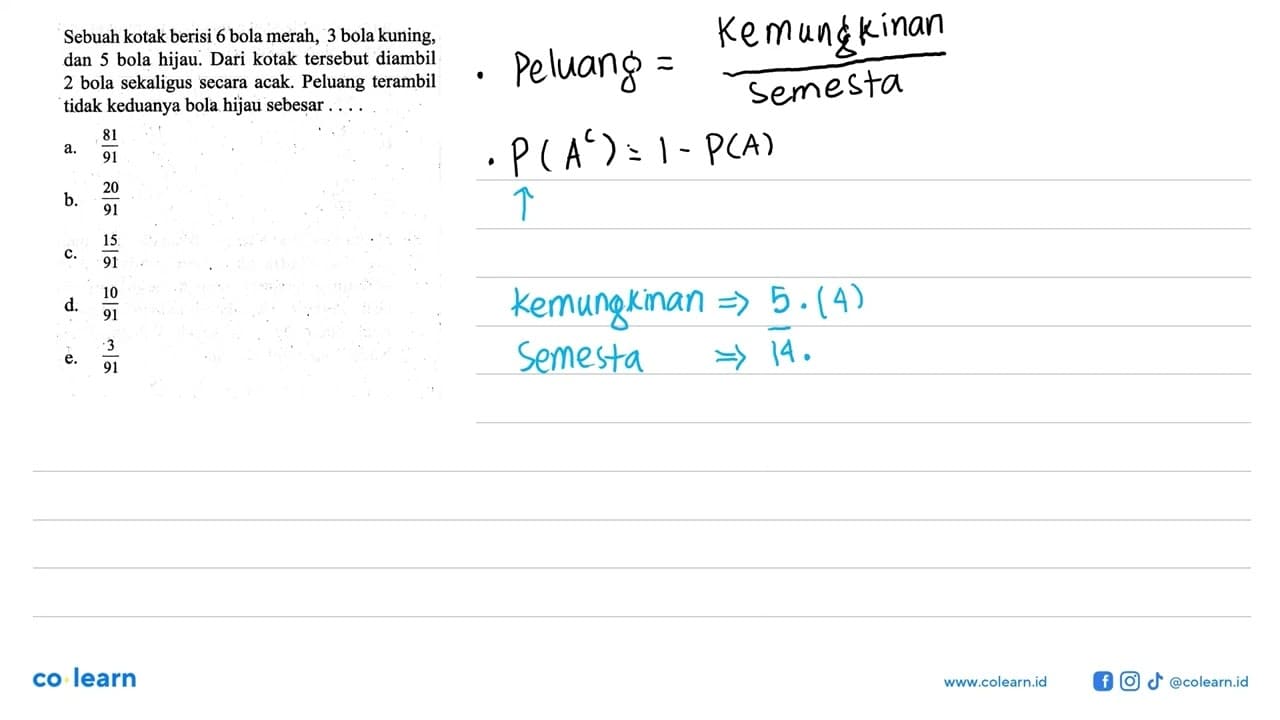 Sebuah kotak berisi 6 bola merah, 3 bola kuning,
dan 5 bola hijau. Dari kotak tersebut diambil
2 bola sekaligus secara acak. Peluang terambil
tidak keduanya bola hijau sebesar . . . .
a. 81/91
b. 20/91
c. 15/91
d. 10/91
e. 3/91
• Peluang = Kemungkinan/Semesta
• P(Aᶜ) = 1 - P(A)
↑
Kemungkinan => 5 . (4)
Semesta => 14 .
co learn
www.colearn.id
@colearn.id